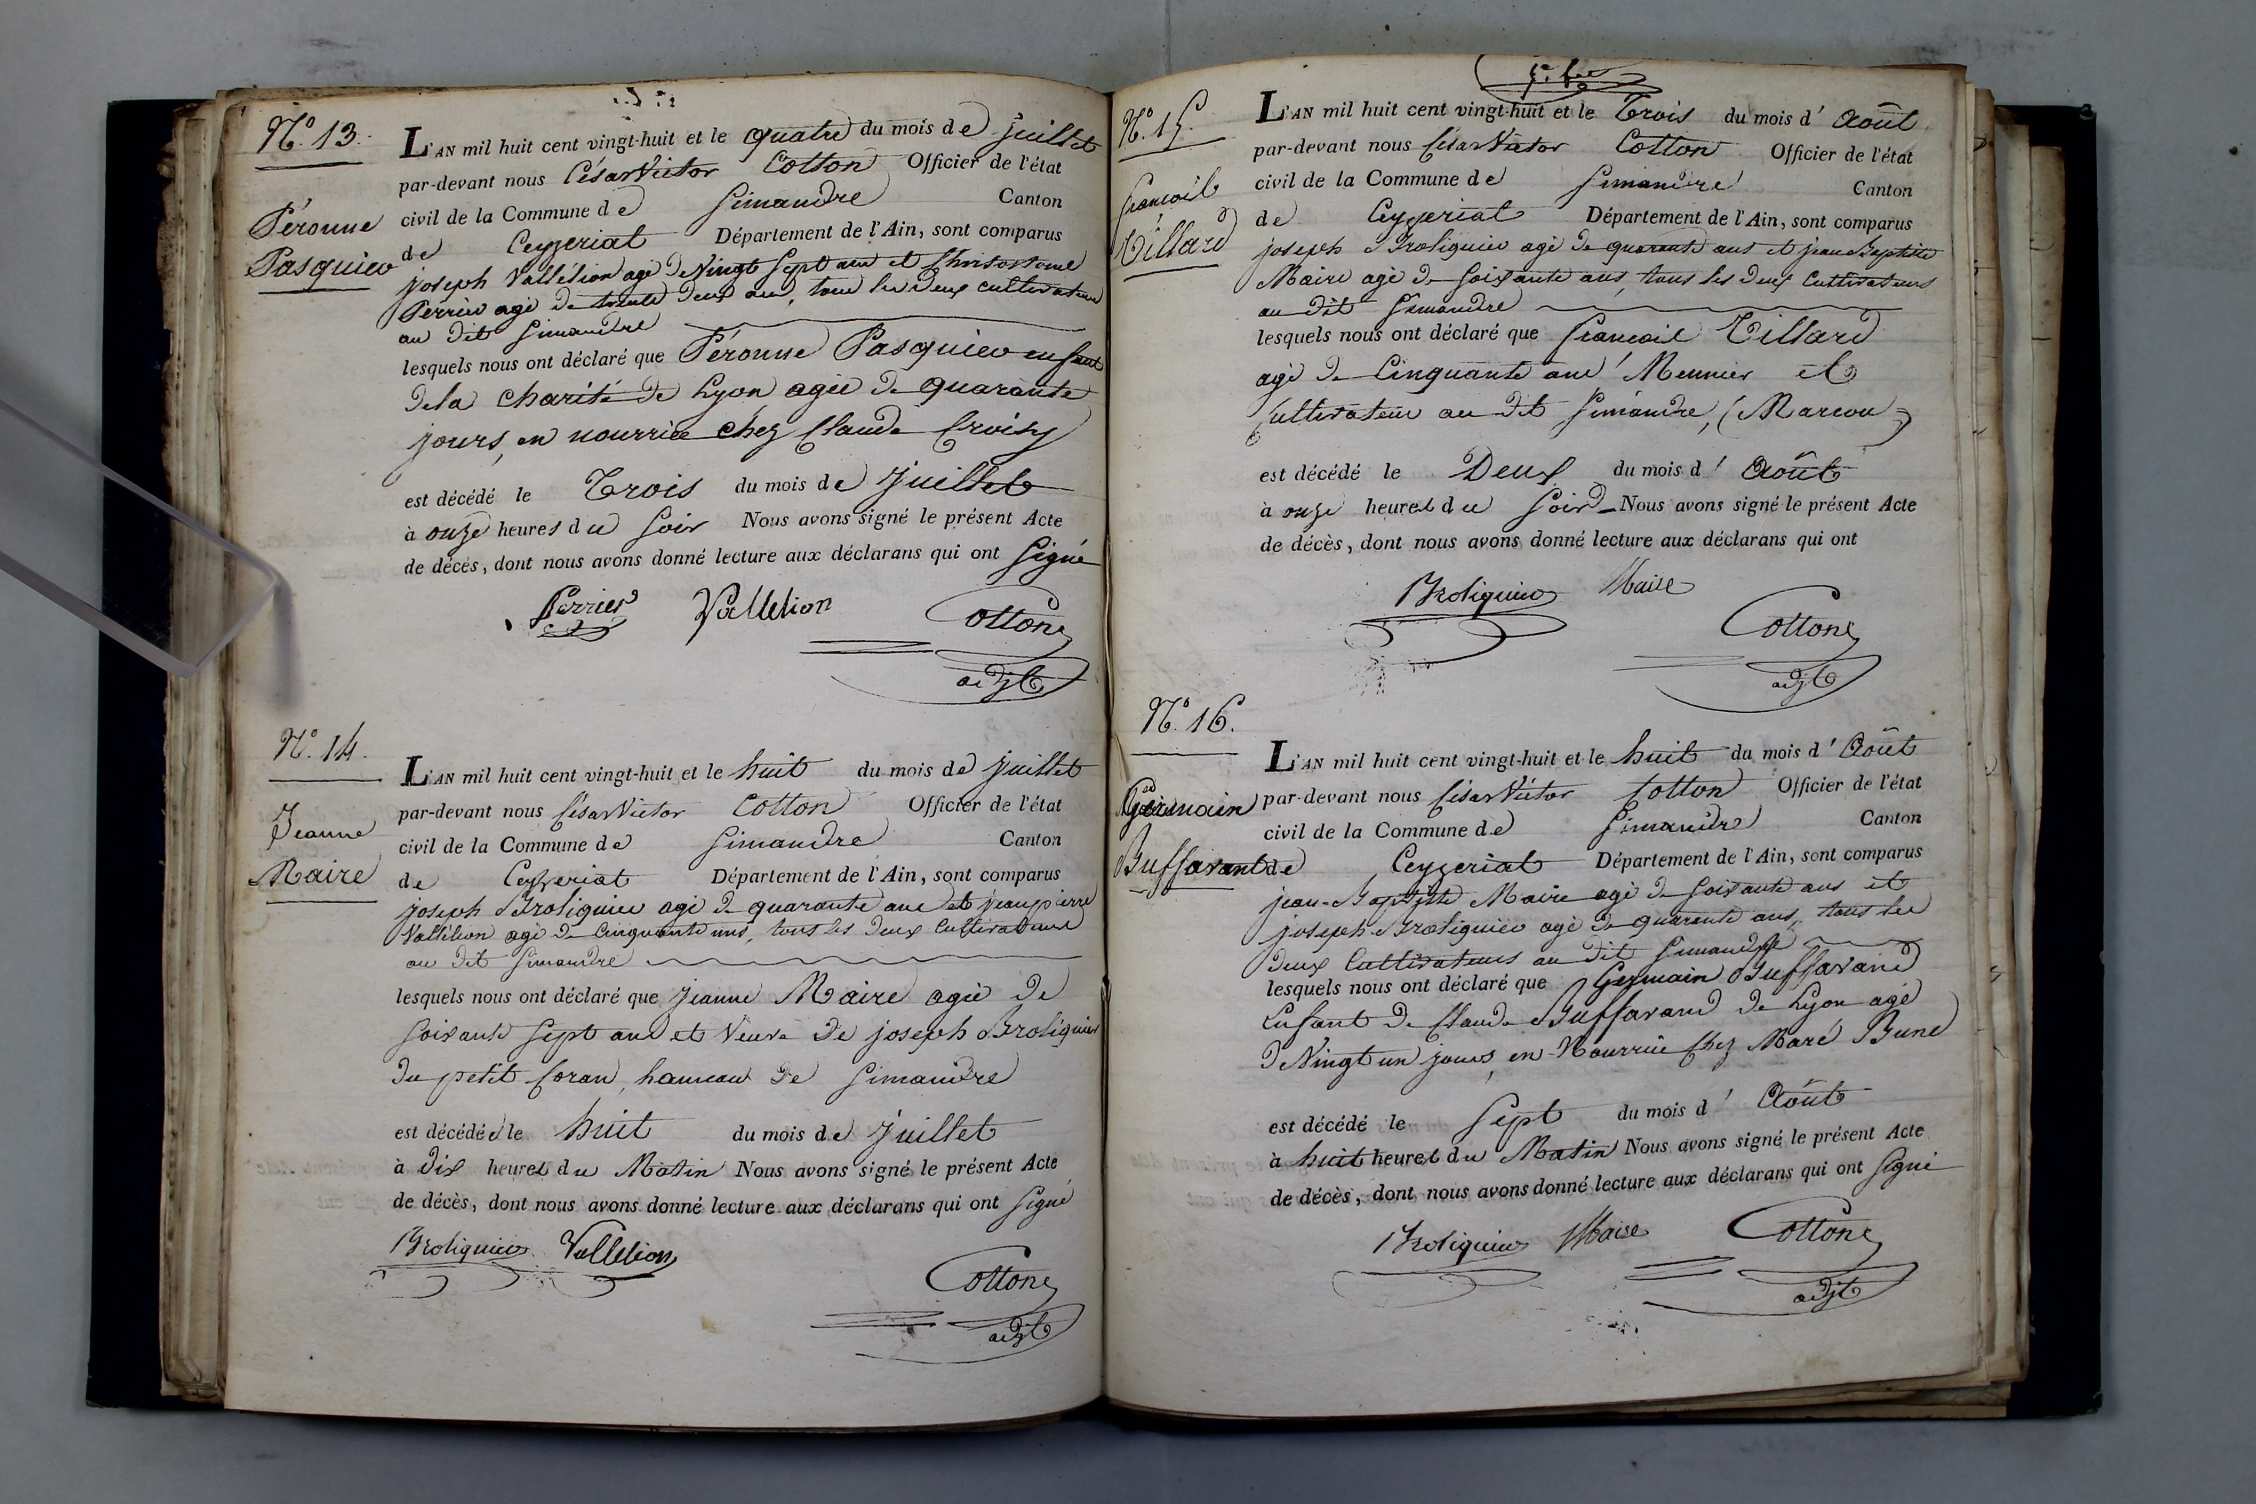 N.º 13.
Péronne
Pasquier
L'AN mil huit cent vingt-huit et le quatre du mois de juillet
par-devant nous César Victor Cotton Officier de l'état
civil de la Commune de Simandre Canton
de Ceyzeriat Département de l'Ain, sont comparus
joseph Vallélion agé de Vingt Sept ans et Chrisostome
Perrier agé de trente deux ans, tous les deux cultivateurs
au dit Simandre
lesquels nous ont déclaré que Péronne Pasquier enfant
de la charité de Lyon agée de quarante
jours, en nourrice chez Claude Croisy
est décédé le Trois du mois de Juillet
à onze heures du Soir Nous avons signé le présent Acte
de décès, dont nous avons donné lecture aux déclarans qui ont Signé
Perrier Vallelion Cotton
adjt
N.º 14.
Jeanne
Maire
L'AN mil huit cent vingt-huit et le huit du mois de juillet
par-devant nous César Victor Cotton Officier de l'état
civil de la Commune de Simandre Canton
de Ceyzeriat Département de l'Ain, sont comparus
joseph Broliquier agé de quarante ans et jean pierre
Vallélion agé de Cinquante ans, tous les deux Cultivateurs
au dit Simandre
lesquels nous ont déclaré que Jeanne Maire agée de
Soixante Sept ans et Veuve de joseph Broliquier
du petit Coran, hameau de Simandre
est décédée le huit du mois de Juillet
à Dix heures du Matin Nous avons signé le présent Acte
de décès, dont nous avons donné lecture aux déclarans qui ont Signé
Broliquier Vallelion
Cotton
adjt
N.º 15.
francois
Tillard
L'AN mil huit cent vingt-huit et le Trois du mois d' Août
par-devant nous César Victor Cotton Officier de l'état
civil de la Commune de Simandre Canton
de Ceyzeriat Département de l'Ain, sont comparus
joseph Broliquier agé de quarante ans et jean Baptiste
Maire agé de Soixante ans, tous les deux Cultivateurs
au dit Simandre
lesquels nous ont déclaré que francois Tillard
agé de Cinquante ans Meunier et
Cultivateur au dit Simandre, (Marcou)
est décédé le Deux du mois d' Août
à onze heures du Soir Nous avons signé le présent Acte
de décès, dont nous avons donné lecture aux déclarans qui ont
Broliquier Maire
Cotton
adjt
N.º 16.
Germain
Buffavant
L'AN mil huit cent vingt-huit et le huit du mois d' Août
par-devant nous César Victor Cotton Officier de l'état
civil de la Commune de Simandre Canton
de Ceyzeriat Département de l'Ain, sont comparus
jean-Baptiste Maire agé de Soixante ans et
joseph Broliquier agé de quarante ans, tous les
deux Cultivateurs au dit Simandre
lesquels nous ont déclaré que Germain Buffavand
Enfant de Claude Buffavand de Lyon agé
de Vingt un jours, en Nourrice Chez Maré Bune
est décédé le Sept du mois d' Août
à huit heures du Matin Nous avons signé le présent Acte
de décès, dont nous avons donné lecture aux déclarans qui ont Signé
Broliquier Maire Cotton
adjt